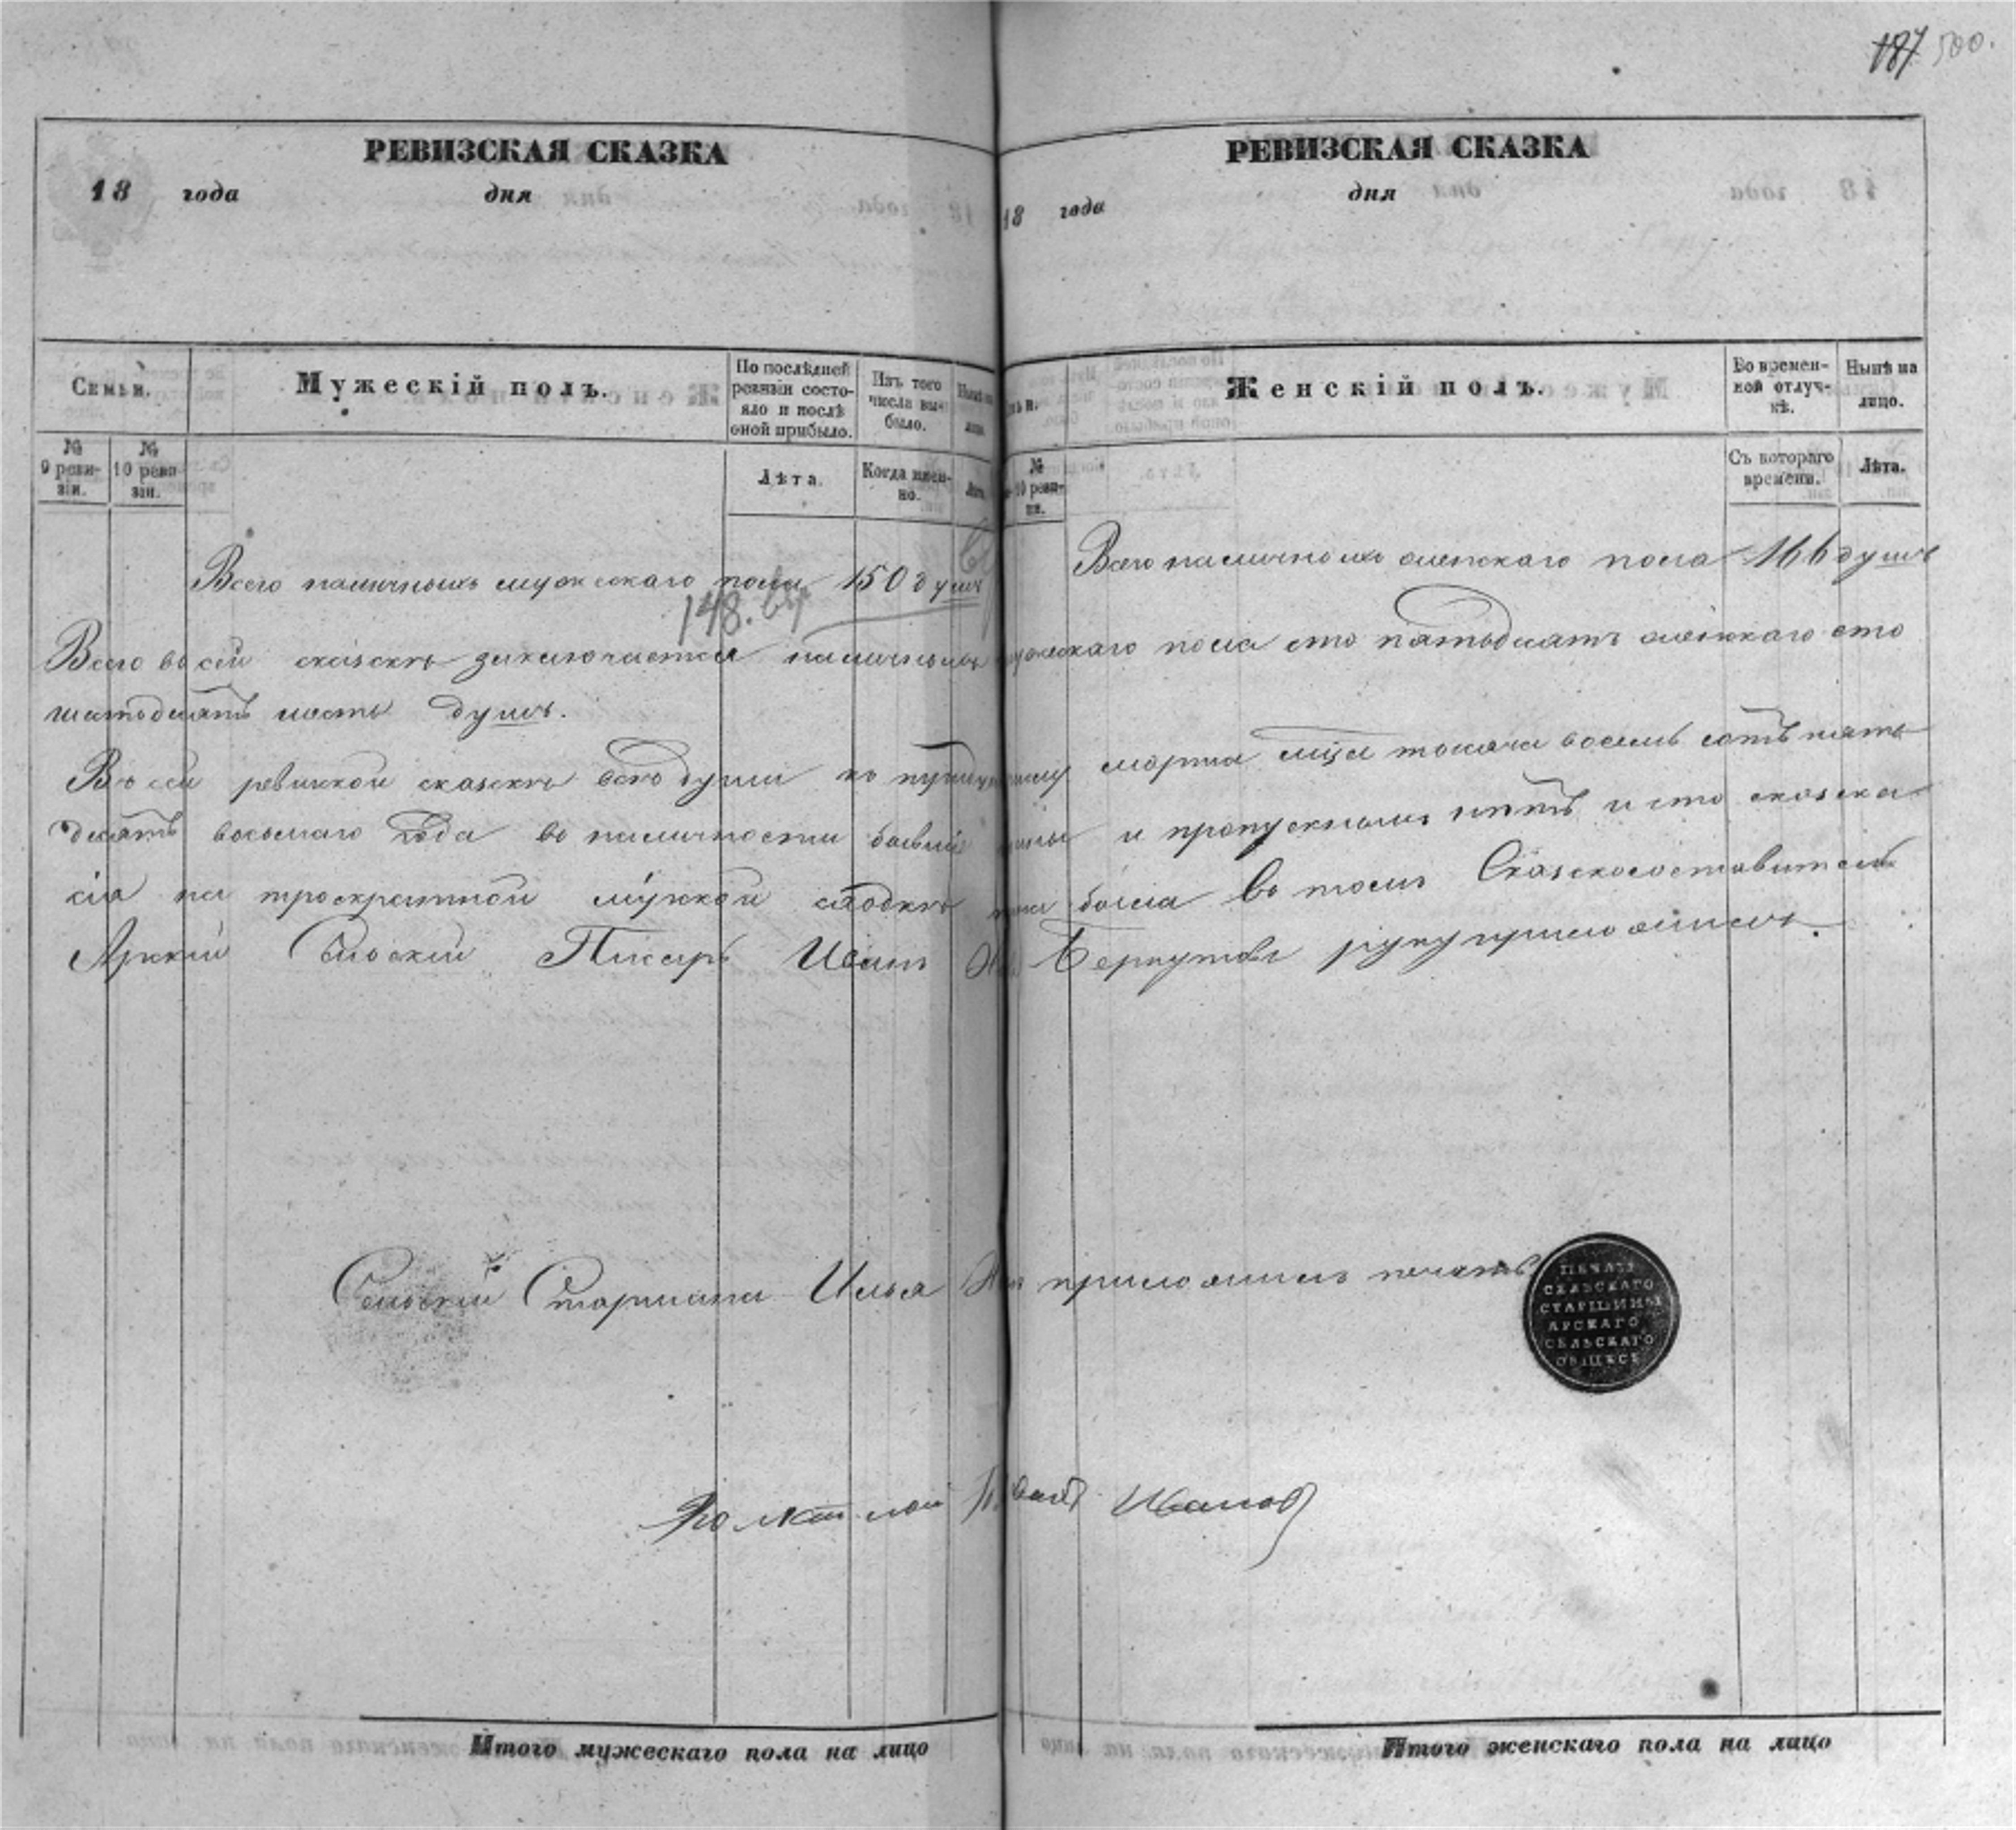 187 500.
РЕВИЗСКАЯ СКАЗКА
18 года дня
Семьи.
Мужескій полъ.
По послѣдней ревизіи состояло и послѣ оной прибыло.
Изъ того числа выбыло.
Нынѣ на лицо.
№ 9 ревизіи.
№ 10 ревизіи.
Лѣта.
Когда именно.
Лѣта.
Всего наличныхъ мужескаго пола 150 душъ
148.
РЕВИЗСКАЯ СКАЗКА
18 года дня
Женскій полъ.
Во временной отлучкѣ.
Нынѣ на лицо.
№ 10 ревизіи.
Съ котораго времени.
Лѣта.
Всего наличныхъ женскаго пола 166 душъ
Всего въ сей сказкѣ заключается наличныхъ мужескаго пола сто пятьдесятъ женскаго сто
шестьдесятъ шесть душъ.
Въ сей ревизкой сказкѣ всѣ души по марта мѣсяца тысяча восемь сотъ пять
десятъ восьмаго года въ наличности и пропускныхъ нѣтъ и что сказка
сія на троекратной мірской сходкѣ была Въ томъ Сказкосоставитель
Сельскій Писарь Иванъ Беркутовъ руку приложилъ.
Сельскій Старшина Илья приложилъ печать
ПЕЧАТЬ
СЕЛЬСКАГО
СТАРШИНЫ
АРСКАГО
СЕЛЬСКАГО
ОБЩЕС
Ивановъ
Итого мужескаго пола на лицо
Итого женскаго пола на лицо